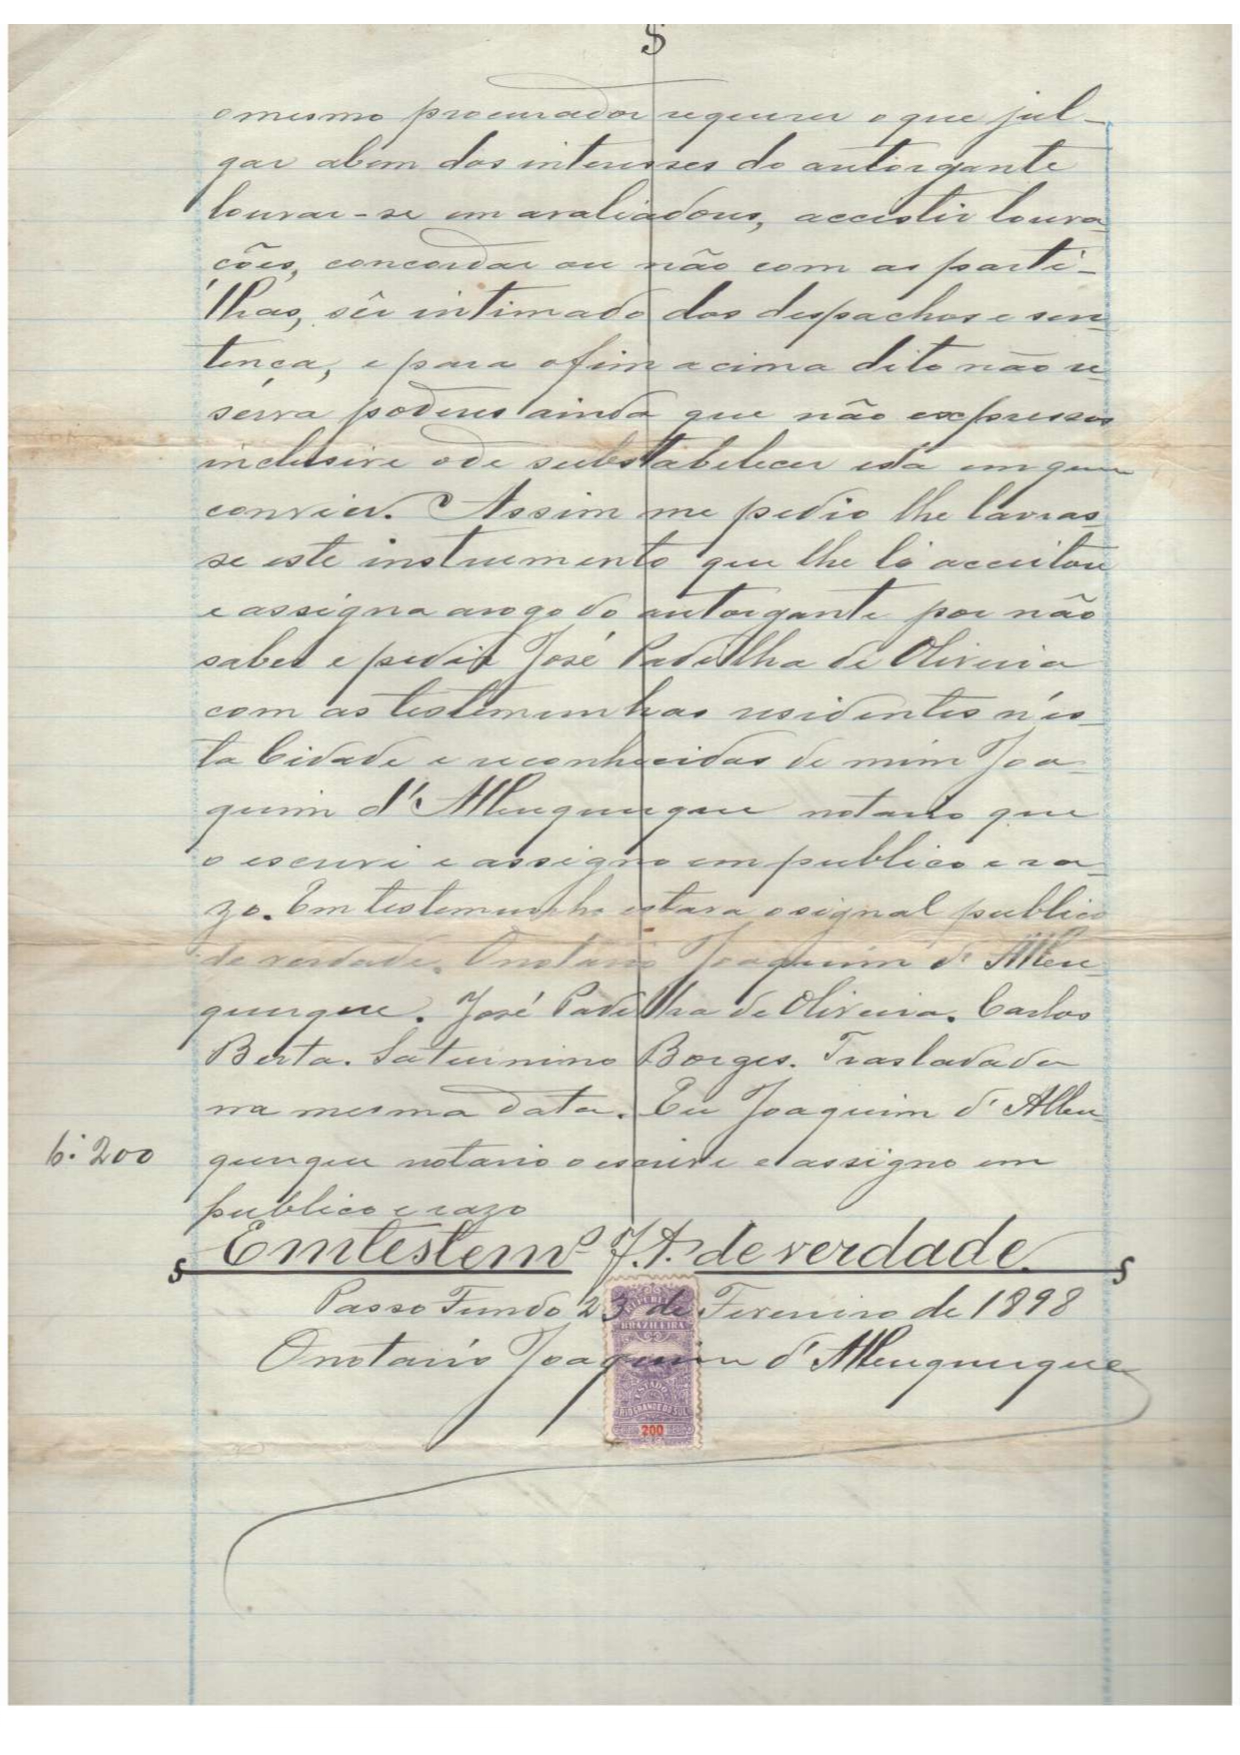 $
o mesmo procurador requerer o que jul-
gar abem dos interesses do autorgante
louvar-se em avaliadores, accistir louva
ções, concordar ou não com as parti-
lhas, sêr intimado dos despachos e sen
tença, e para o fim acima dito não re
serva poderes ainda que não expressos
inclusive o de substabelecer esta em quem
convier. Assim me pedio lhe lavras
se este instrumento que lhe li acceitou
e assigna arogo do autorgante por não
saber e pedir José Padilha de Oliveira
com as testemunhas residentes n'es
ta Cidade e reconhecidas de mim Joa
quim d'Albuquerque notario que
o escrevi e assigno em publico e ra
zo. Em testemunho estava o signal publico
de verdade. O notario Joaquim d'Albu
querque. José Padilha de Oliveira. Carlos
Berta. Saturnino Borges. Trasladada
na mesma data. Eu Joaquim d'Albu
6:200 querque notario o escrevi e assigno em
publico e razo
Em testem.º J.A. de verdade
Passo Fundo 23 de Fevereiro de 1898
O notario Joaquim d'Albuquerque
BRAZILEIRA
ESTADO
RIO GRANDE DO SUL
200